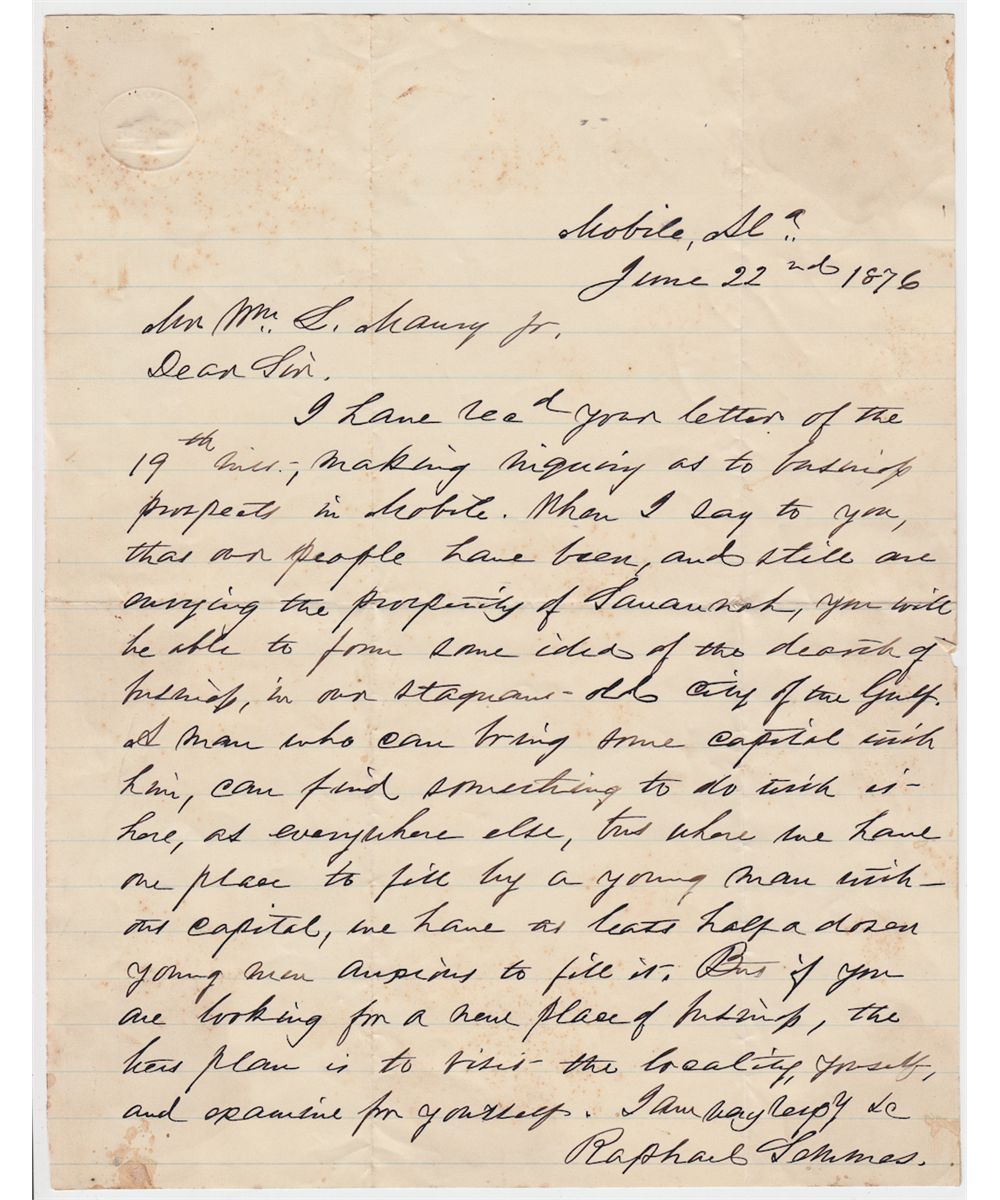 Mobile, Ala.
June 22nd 1876
Mr Wm. L. Maury Jr.
Dear Sir.
I have recd your letter of the
19th inst., making inquiry as to business
prospects in Mobile. When I say to you,
that our people have been, and still are
envying the prosperity of Savannah, you will
be able to form some idea of the dearth of
business, in our stagnant old city of the Gulf.
A man who can bring some capital with
him, can find something to do with it
here, as everywhere else, but where we have
one place to fill by a young man with-
out capital, we have at least half a dozen
young men anxious to fill it. But if you
are looking for a new place of business, the
best plan is to visit the locality, yourself,
and examine for yourself. I am very respy &c
Raphael Semmes.